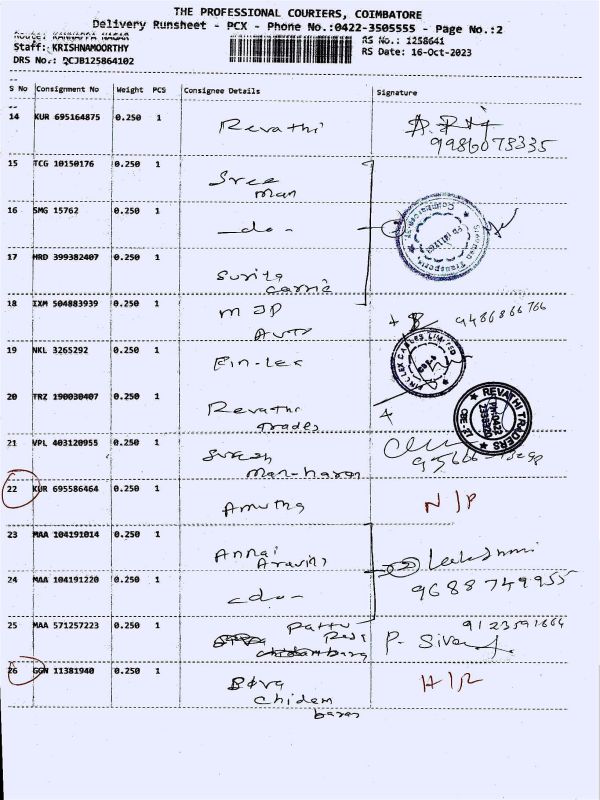 THE PROFESSIONAL COURIERS, COIMBATORE
Delivery Runsheet - PCX - Phone No.:0422-3505555 - Page No.:2
Route: KANNAPPA NAGAR
RS No.: 1258641
Staff: KRISHNAMOORTHY
RS Date: 16-Oct-2023
DRS No.: DCJB125864102
S No Consignment No Weight PCS Consignee Details Signature
14 KUR 695164875 0.250 1 Revathi
9986073335
15 TCG 10150176 0.250 1 Sree
man
16 SMG 15762 0.250 1 -do-
17 HRD 399382407 0.250 1 Surita
carrie
18 IXM 504883939 0.250 1 M JP 9486866766
Auto
19 NKL 3265292 0.250 1 Fin-Lex
FIN LEX CABLES LIMITED
20 TRZ 190030407 0.250 1 Revathi
trades
REVATHI TRADERS
21 VPL 403120955 0.250 1 Suresh
man-haran
22 KUR 695586464 0.250 1 Amutha N/P
23 MAA 104191014 0.250 1 Annai
Aravind Lakshmi
24 MAA 104191220 0.250 1 -do- 9688749955
25 MAA 571257223 0.250 1 Pattu 9123591664
P. Siva
26 GGN 11381940 0.250 1 Siva H/R
chidem
baran